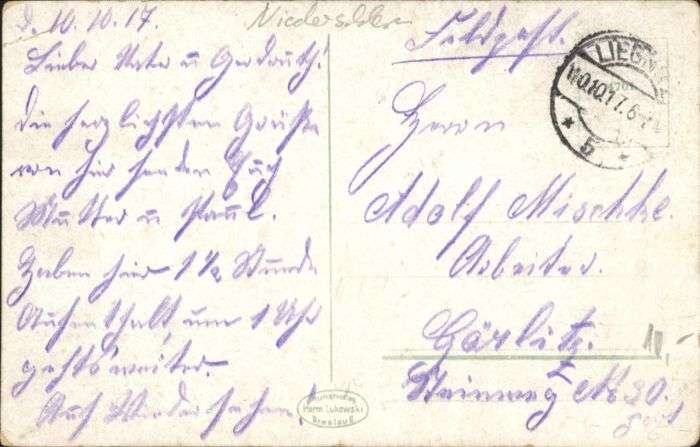 d. 10.10.17.
Niederschles
Lieber Vater u Gertrud!
die herzlichsten Grüße
von hier senden Euch
Mutter u Paul.
Haben hier 1 ½ Stunde
Aufenthalt, um 1 Uhr
gehts weiter.
Auf Wiedersehen!
Feldpost.
LIEGNITZ
10.10.17.6-7
* 5 *
Herrn
Adolf Mischke.
Arbeiter.
Görlitz.
Steinweg No 30.
Herm. Lukowski
Breslau